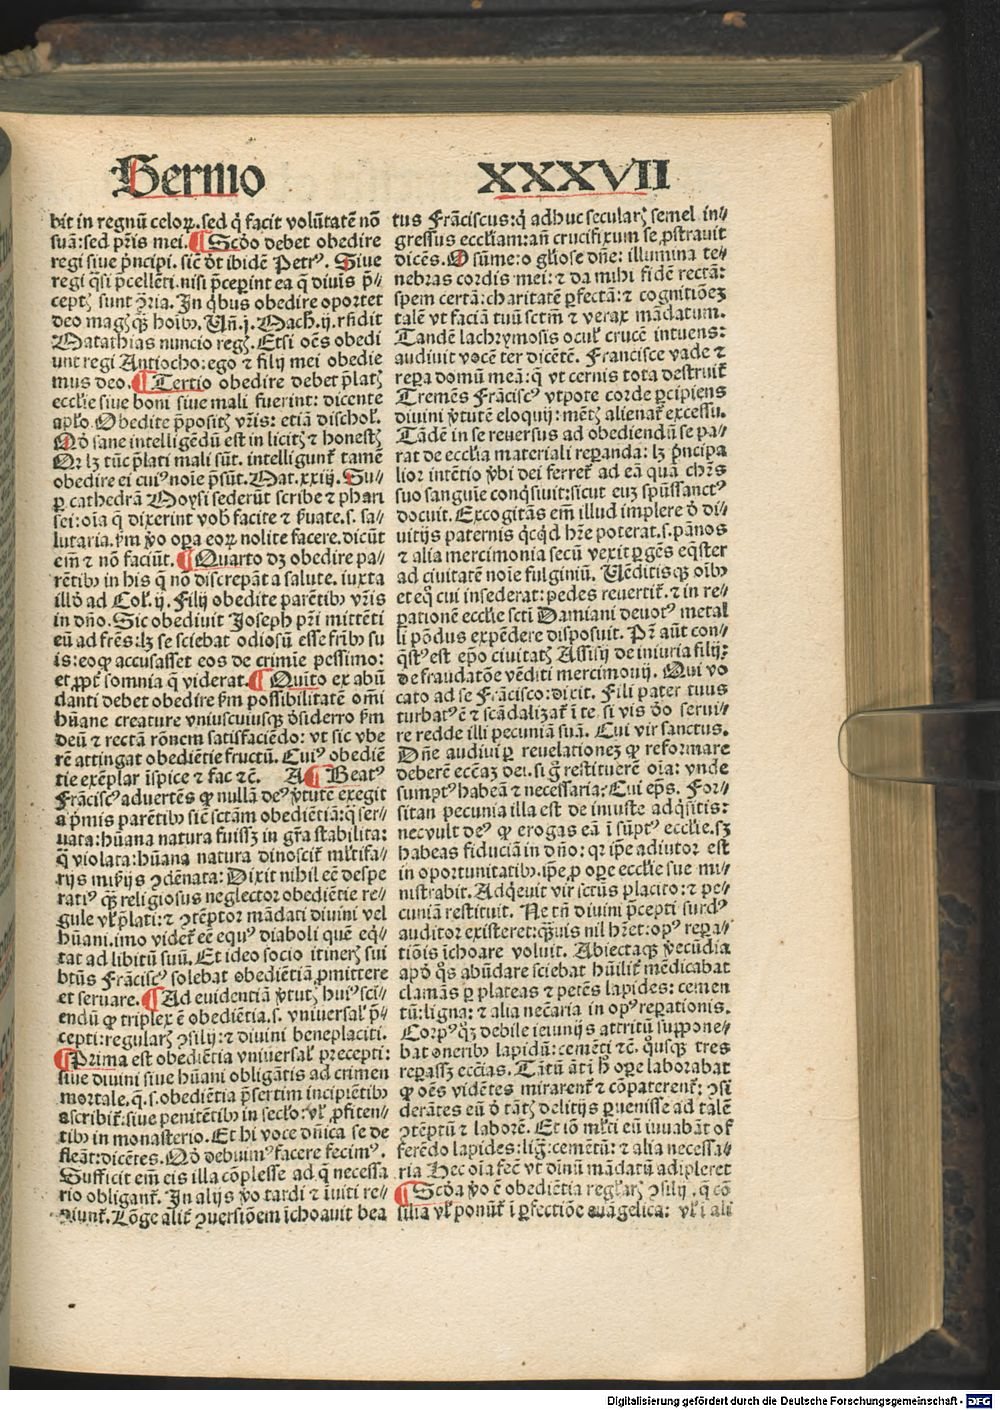 Sermo XXXVII
bit in regnū celoꝝ. sed q̇ facit volūtatē nō
suā: sed pr̄is mei. ¶ Scd̄o debet obedire
regi siue p̄ncipi. sic̄ d̄t ibidē Petrꝰ. Siue
regi q̄si p̄cellēti. nisi p̄cep̄int ea q̄ diuīs p̄⸗
ceptꝭ sunt ꝯ̄ria. In q̇bus obedire oportet
deo magꝭ qꝫ̄ hoīb⁹. Un̄. j. Mach. ij. rn̄dit
Matathias nuncio regꝭ. Etsi oēs obedi
unt regi Antiocho: ego ⁊ filij mei obedie
mus deo. ¶ Tertio obedire debet p̄latꝭ
eccl̄ie siue boni siue mali fuerint: dicente
apl̄o. Obedite p̄positꝭ vr̄is: etiā dischol̓.
Qḋ sane intelligēdū est in licitꝭ ⁊ honestꝭ
Qꝛ lꝫ tūc p̄lati mali sūt. intelligunt̄ tamē
obedire ei cuiꝰ noīe p̄sūt. Mat. xxiij. Su⸗
ꝑ cathedrā Moysi sederūt scribe ⁊ phari
sei: oīa q̄ dixerint vob̓ facite ⁊ ẜuate. s. sa⸗
lutaria. ẜm v̇o oꝑa eoꝝ nolite facere. dicūt
em̄ ⁊ nō faciūt. ¶ Quarto dꝫ obedire pa⸗
rētib⁹ in his q̄ nō discrepāt a salute. iuxta
illḋ ad Col̓. ij. Filij obedite parētib⁹ vr̄is
in dn̄o. Sic obediuit Joseph pr̄i mittēti
eū ad fr̄es: lꝫ se sciebat odiosū esse fr̄ib⁹ su
is: eo ꝙ accusasset eos de crimīe pessimo:
et ꝓpt̓ somnia q̄ viderat. ¶ Quīto ex abū
danti debet obedire ẜm possibilitatē om̄i
hūane creature vniuscuiusqꝫ ḋsiderro ẜm
deū ⁊ rectā rōnem satisfaciēdo: vt sic vbe
rē attingat obediētie fructū. Cuiꝰ obediē
tie exēplar īspice ⁊ fac ⁊c̄. A ¶ Beatꝰ
Frāciscꝰ aduertēs ꝙ nullā deꝰ v̓tutē exegit
a p̄mis parētib⁹ sic̄ sctām obediētiā: q̄ ser⸗
uata: hūana natura fuissꝫ in gr̄a stabilita:
q̄ violata: hūana natura dinoscit̄ ml̓tifa⸗
rijs mis̓ijs ꝯdēnata: Dixit nihil eē despe
ratiꝰ qꝫ̄ religiosus neglector obediētie re⸗
gule vl̓ p̄lati: ⁊ ꝯtēptor mādati diuini vel
hūani. imo videt̄ eē equꝰ diaboli quē eq̇⸗
tat ad libitū suū. Et ideo socio itinerꝭ sui
bt̄us Frāciscꝰ solebat obediētiā ꝓmittere
et seruare. ¶ Ad euidentiā v̓tutꝭ huiꝰ sci⸗
endū ꝙ triplex ē obediētia. s. vniuersal̓ p̄⸗
cepti: regularꝭ ꝯsilij: ⁊ diuini beneplaciti.
¶ Prima est obediētia vniuersal̓ precepti:
siue diuini siue hūani obligātis ad crimen
mortale. q. s. obediētia p̄sertim incipiētib⁹
ascribit̄: siue penitētib⁹ in secl̓o: vl̓ ꝓfiten⸗
tib⁹ in monasterio. Et hi voce dn̄ica se de
fleāt: dicētes. Qḋ debuimꝰ facere fecimꝰ.
Sufficit em̄ eis illa cōplesse ad q̄ necessa
rio obligant̄. In alijs v̇o tardi ⁊ īuiti re⸗
Lōge alit̓ ꝯuersiōem īchoauit bea
tus Frāciscus: q̇ adhuc secularꝭ semel in⸗
gressus eccl̄iam: an̄ crucifixum se ꝓstrauit
dicēs. O sūme: o gl̄iose dn̄e: illumina te⸗
nebras cordis mei: ⁊ da mihi fidē rectā:
spem certā: charitatē ꝑfectā: ⁊ cognitiōeꝫ
talē vt faciā tuū sctm̄ ⁊ verax mādatum.
Tandē lachrymosis ocul̓ crucē intuens:
audiuit vocē ter dicētē. Francisce vade ⁊
reꝑa domū meā: q̄ vt cernis tota destruit̄
Tremēs Frāciscꝰ vtpote corde ꝑcipiens
diuini v̓tutē eloquij: mētꝭ alienat̄ excessu.
Tādē in se reuersus ad obediendū se pa⸗
rat de eccl̄ia materiali reꝑanda: lꝫ p̄ncipa
lior intētio v̓bi dei ferret̄ ad eā quā chr̄s
suo sanguīe conq̇siuit: sicut euꝫ spūssanctꝰ
docuit. Excogitās em̄ illud implere ḋ di⸗
uitijs paternis q̇cq̇d hr̄e poterat. s. pānos
⁊ alia mercimonia secū vexit ꝑ gēs eq̄ster
ad ciuitatē noīe fulginiū. Uēditisqꝫ oīb⁹
et eq̇ cui insederat: pedes reuertit̄. ⁊ in re⸗
ꝑationē eccl̄ie sctī Damiani deuotꝰ metal
li pōdus expēdere disposuit. Pr̄ aūt con⸗
q̄stꝰ est ep̄o ciuitatꝭ Assisij de iniuria filij:
de fraudatōe vēditi mercimonij. Qui vo
cato ad se Frācisco: dixit. Fili pater tuus
turbatꝰ ē ⁊ scādalizat̄ ī te. si vis ḋo serui⸗
re redde illi pecuniā suā. Cui vir sanctus.
Dn̄e audiui ꝑ reuelationeꝫ ꝙ reformare
deberē ecc̄eaꝫ dei. si ġ restituerē oīa: vnde
sumptꝰ habeā ⁊ necessaria? Cui ep̄s. For⸗
sitan pecunia illa est de iniuste adq̇sitis:
nec vult deꝰ ꝙ erogas eā ī sūptꝰ eccl̄ie. sꝫ
habeas fiduciā in dn̄o: qꝛ ip̄e adiutor est
in oportunitatib⁹. ip̄e ꝓ oꝑe eccl̄ie sue mi⸗
nistrabit. Adq̇euit vir sctūs placito: ⁊ pe⸗
cuniā restituit. Ne tn̄ diuini p̄cepti surdꝰ
auditor existeret: qꝫ̄uis nil hr̄et: opꝰ reꝑa⸗
tiōis īchoare voluit. Abiectaqꝫ v̓ecūdia
apḋ q̇s abūdare sciebat hūilit̓ mēdicabat
clamās ꝑ plateas ⁊ petēs lapides: cemen
tū: ligna: ⁊ alia nec̄aria in opꝰ reꝑationis.
Corpꝰ qꝫ debile ieiunijs attritū suppone⸗
bat onerib⁹ lapidū: cemēti ⁊c̄. q̇usqꝫ tres
reꝑassꝫ ecc̄ias. Tātū āt ī h̓ oꝑe laborabat
ꝙ oēs vidētes mirarent̄ ⁊ cōpaterent̄: ꝯsi
derātes eū ḋ tātꝭ delitijs ꝑuenisse ad talē
ꝯtēptū ⁊ laborē. Et iō ml̓ti eū iuuabāt of
ferēdo lapides: lig: cemētū: ⁊ alia necessa⸗
ria Hec oīa fec̄ vt diuinū mādatū adipleret
¶ Scd̄a v̇o ē obediētia reglarꝭ ꝯsilij. q̄ cō
silia vl̓ ponūt̄ ī ꝑfectiōe euāgelica: vl̓ ī ali
Digitalisierung gefördert durch die Deutsche Forschungsgemeinschaft - DFG